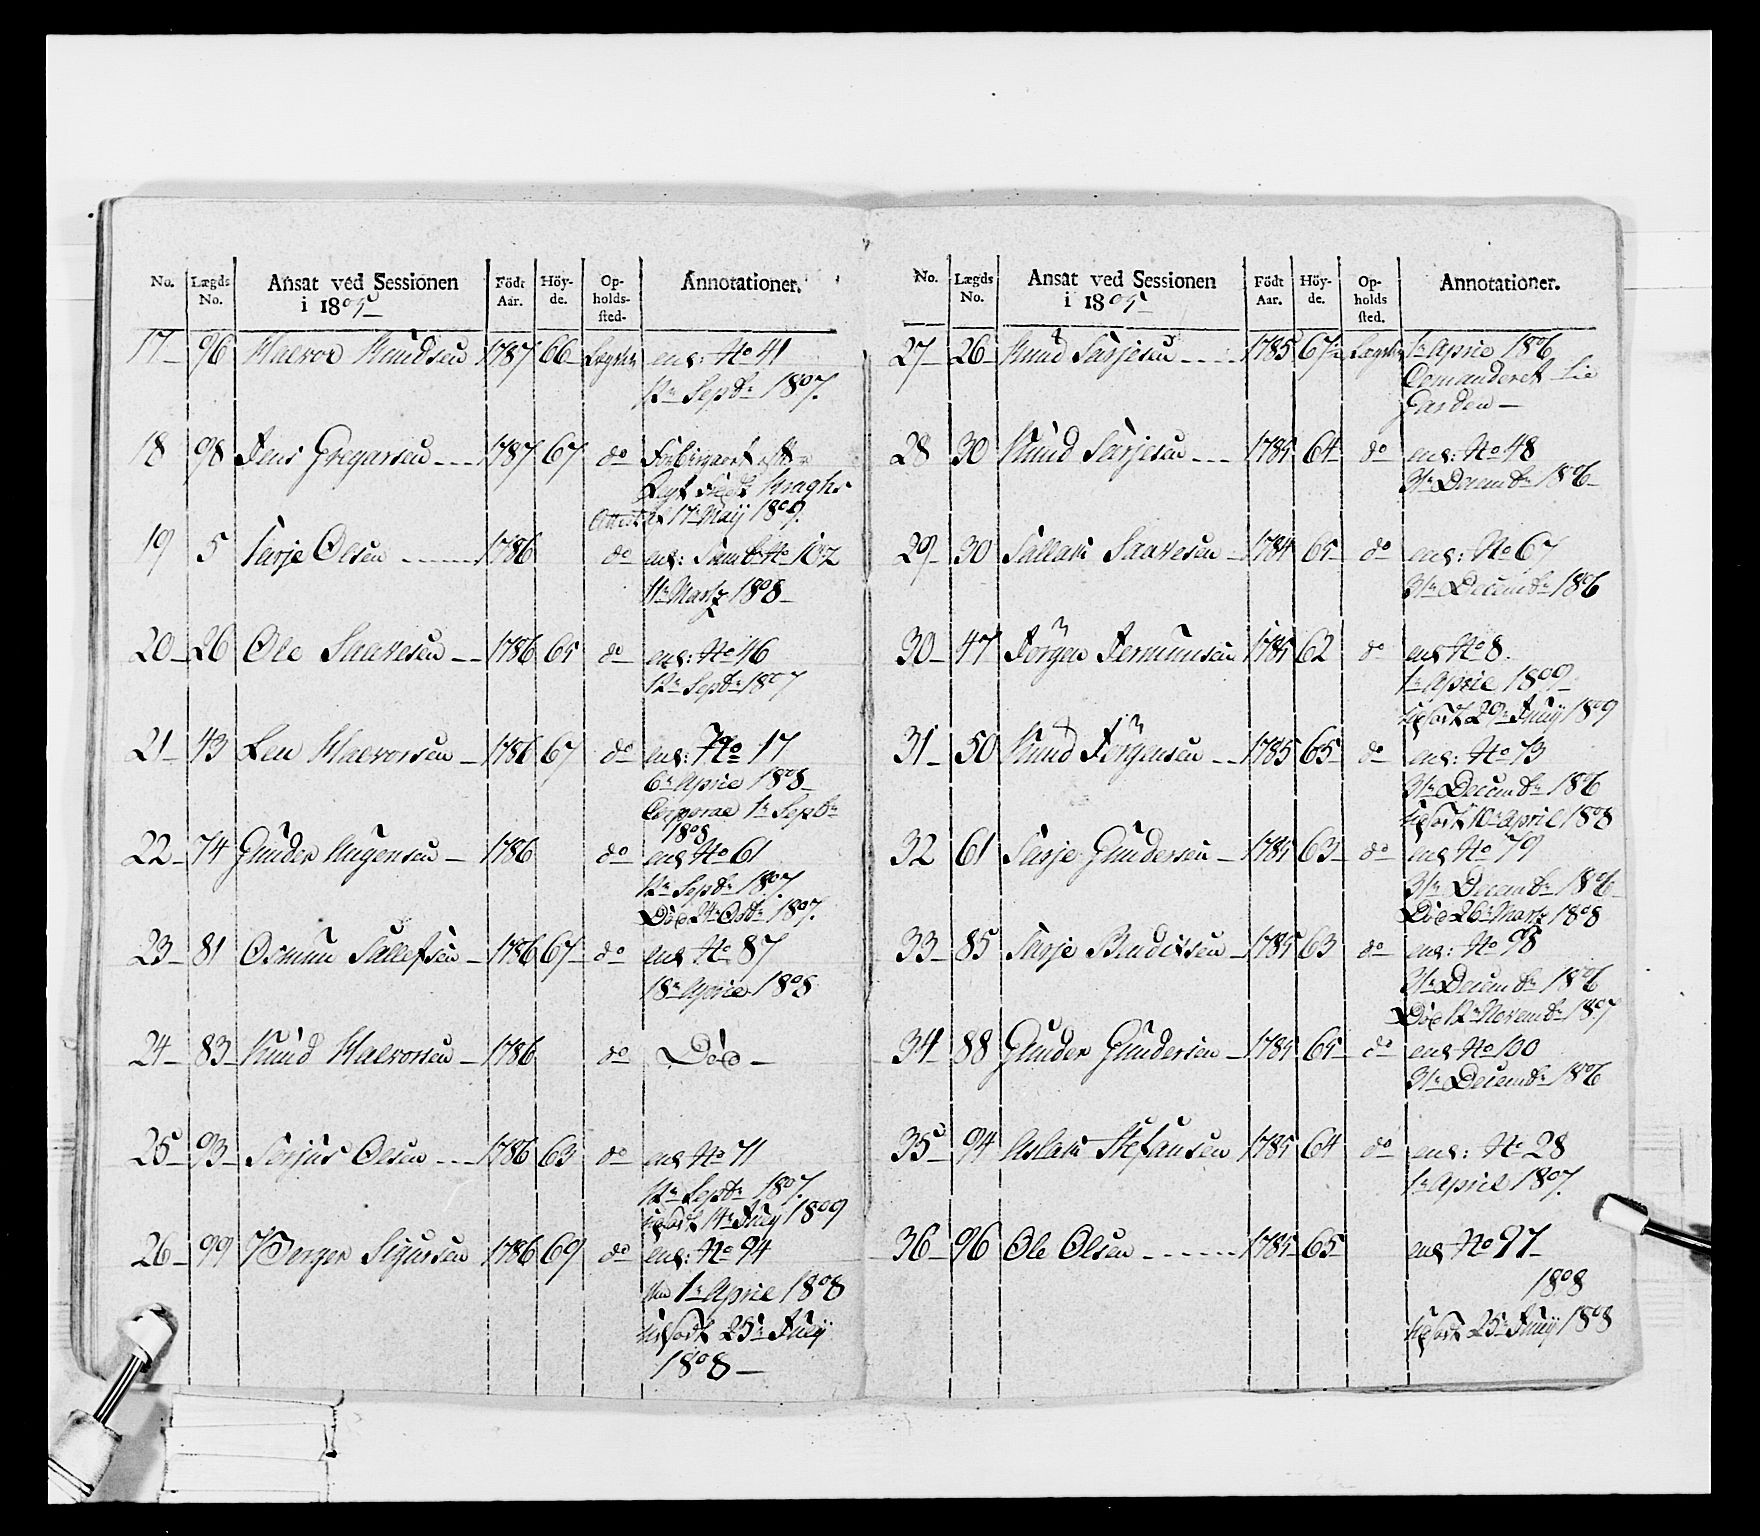 No. Lægds No. Ansat ved Sessionen i 1805 Födt Aar. Höy-de. Op-holds-sted. Annotationer.
17 96 Halvor Knudsen 1787 66 Lægdet ans: No 41
12te Septbr 1807.
18 98 Jens Gregarsen 1787 67 do
Attest af 17de Maij 1809.
19 5 Tarje Olsen 1786 do ans: No 102
11te Martz 1808
20 26 Ole Saavesen 1786 65 do ans: No 46
12te Septbr 1807
21 43 Halvorsen 1786 67 do ans: No 17
6te April 1808
Corporal 1te Septbr
1808
22 74 Gunder Augensen 1786 do ans No 61
12te Septbr 1807.
Död 24de Octbr 1807.
23 81 Osmun Sallefsen 1786 67 do ans No 87
18de April 1808
24 83 Knud Halvorsen 1786 do Död
25 93 Terjus Olsen 1786 63 do ans No 71
12te Septbr 1807.
udsodt 14de July 1809
26 99 Berger Sigursen 1786 69 do ans: No 94
den 1te April 1808
udsodt 25de July
1808
No. Lægds No. Ansat ved Sessionen i 1805 Födt Aar. Höy-de. Op-holds sted. Annotationer.
27 26 Knud Tarjesen 1785 67 Lægdet 1te April 1806
Comanderet til
Garden
28 30 Knud Tarjesen 1785 64 do ans: No 48
31te Decembr 1806
29 30 Tallak Saavesen 1784 65 do ans: No 67
31te Decembr 1806
30 47 Jörgen Jermunsen 1785 62 do ans No 8
1te April 1809
udsodt 29de July 1809
31 50 Knud Jörgensen 1785 65 do ans: No 73
31te Decembr 1806
udsodt 10de April 1808
32 61 Tarje Gundersen 1785 63 do ans No 79
31te Decembr 1806
Död 26de Martz 1808
33 85 Tarje 1785 63 do ans: No 98
31te Decembr 1806
Död 12te Novembr 1807
34 88 Gunder Gundersen 1785 65 do ans No 100
31te Decembr 1806
35 94 Aslak Stefansen 1785 64 do ans: No 28
1te April 1807.
36 96 Ole Olsen 1785 65 ans No 97
1808
udsodt 25de July 1808